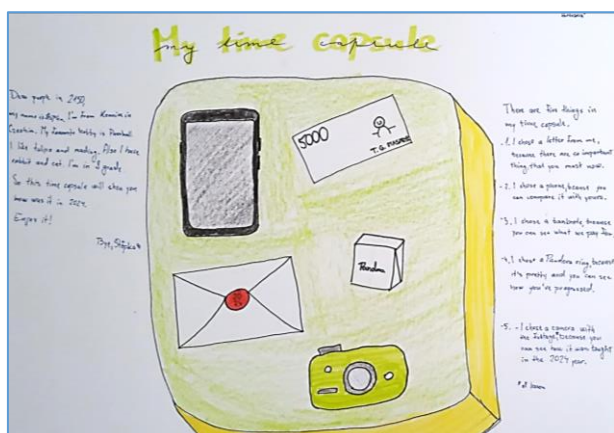 My time capsule
Dear people in 2150,
my name is I'm from in
Czechia. My favourite hobby is
I like tulips and reading. Also I have
rabbit and cat. I'm in grade
So this time capsule will show you
how was it in 2024.
Enjoy it!
Bye,
5000
T. G.
Pandora
There are five things in
my time capsule.
-1. I chose a letter from me,
because there are so important
thing, that you must now.
-2. I chose a phone, because you
can compare it with yours.
-3. I chose a banknote, because
you can see what we pay for.
-4. I chose a Pandora ring, because
it's pretty and you can see
how you've progressed.
-5. - I chose a camera with
the because you
can see how it was
in the 2024 year.